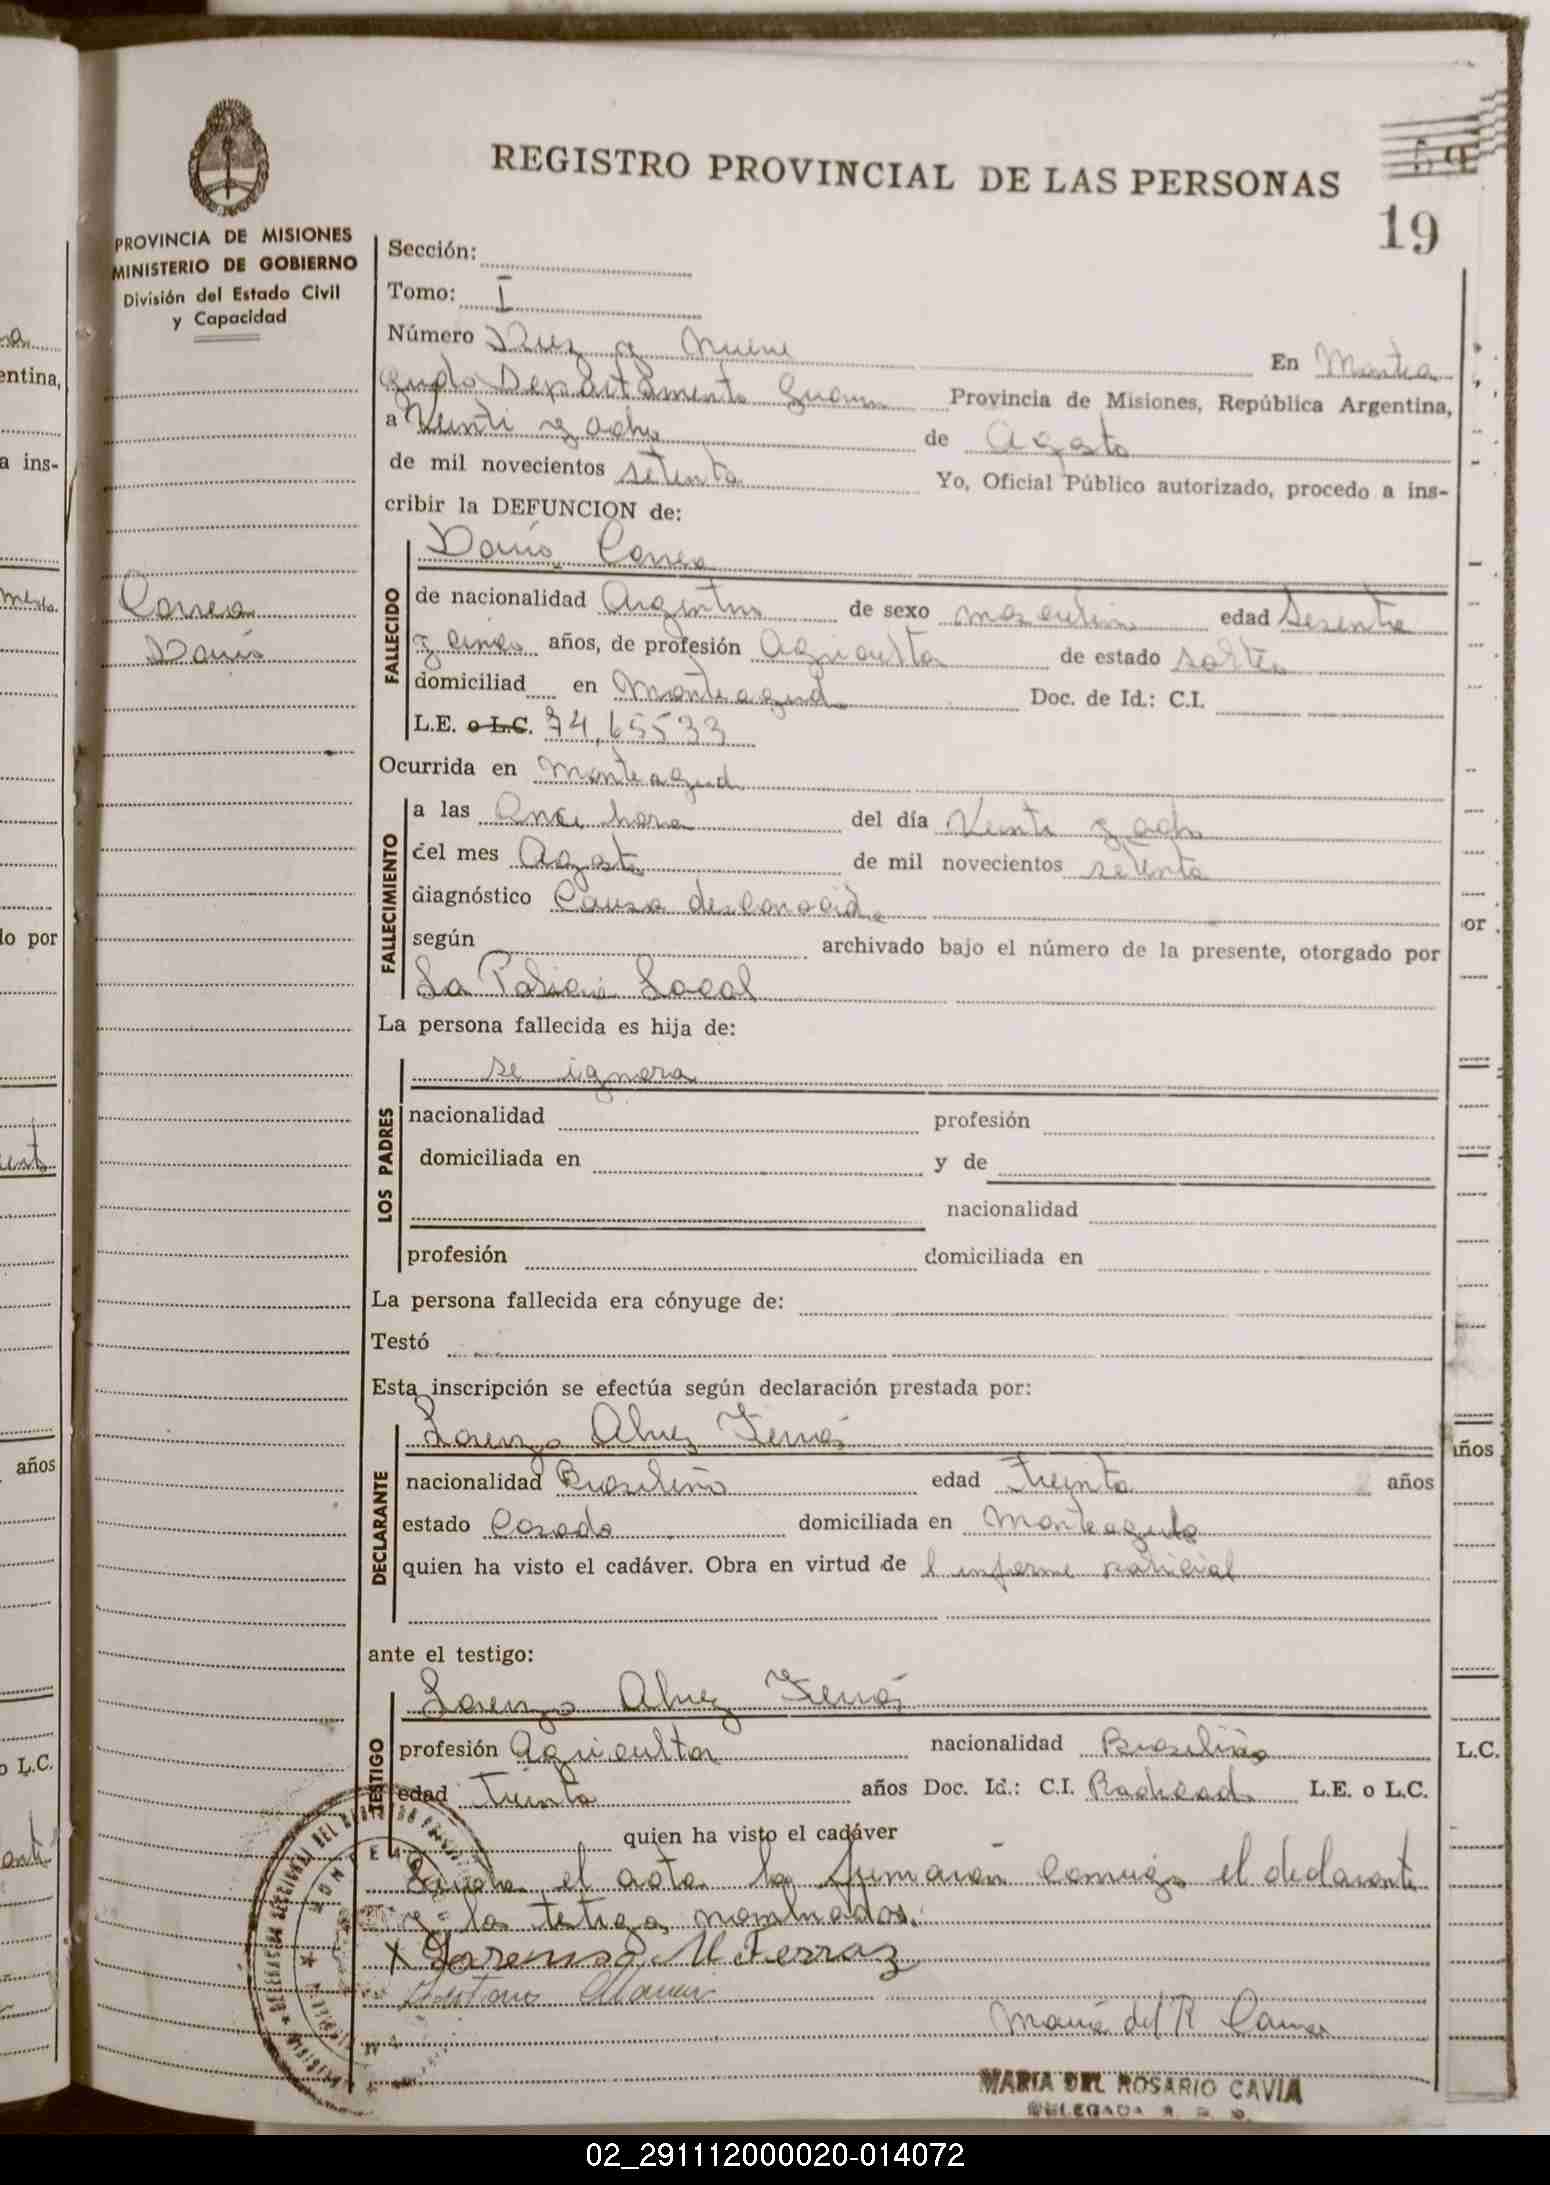 REGISTRO PROVINCIAL DE LAS PERSONAS
19
PROVINCIA DE MISIONES
MINISTERIO DE GOBIERNO
División del Estado Civil
y Capacidad
Sección:
Tomo: I
Número Diez y nueve En Montea
gudo Departamento Guarani Provincia de Misiones, República Argentina,
a Veinti y ocho de Agosto
de mil novecientos setenta Yo, Oficial Público autorizado, procedo a ins-
cribir la DEFUNCION de:
Correa
Darío
FALLECIDO
Darío Correa
de nacionalidad Argentino de sexo masculino edad sesenta
y cinco años, de profesión Agricultor de estado soltero
domiciliad en Monteagudo Doc. de Id.: C.I.
L.E. o L.C. 74,65533
Ocurrida en Monteagudo
FALLECIMIENTO
a las Once hora del día Veinti y ocho
del mes Agosto de mil novecientos setenta
diagnóstico Causa desconocida
según archivado bajo el número de la presente, otorgado por
La Policia Local
La persona fallecida es hija de:
LOS PADRES
se ignora
nacionalidad profesión
domiciliada en y de
nacionalidad
profesión domiciliada en
La persona fallecida era cónyuge de:
Testó
Esta inscripción se efectúa según declaración prestada por:
DECLARANTE
Lorenzo Alvez Ferrás
nacionalidad Brasileño edad Treinta años
estado Casado domiciliada en Monteagudo
quien ha visto el cadáver. Obra en virtud de l informe policial
ante el testigo:
TESTIGO
Lorenzo Alvez Ferrás
profesión Agricultor nacionalidad Brasileño
edad Treinta años Doc. Id.: C.I. L.E. o L.C.
quien ha visto el cadáver
el acta la firmarón comigo el declarante
y los testigo nombrados.
X Lorenso Al Ferraz
Maria del R
MARIA DEL ROSARIO CAVIA
DELEGADA R. P. P.
02_291112000020-014072